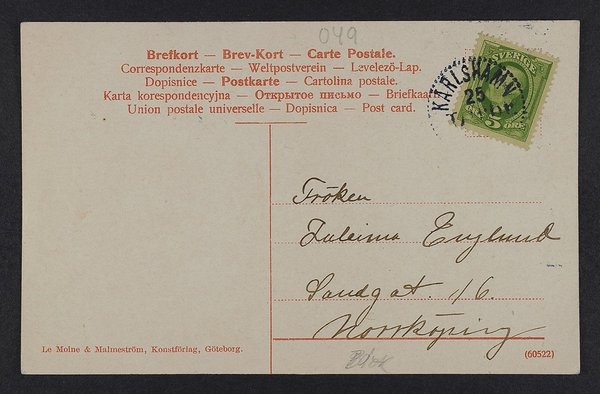 049
Brefkort — Brev-Kort — Carte Postale.
Correspondenzkarte — Weltpostverein — Levelező-Lap.
Dopisnice — Postkarte — Cartolina postale.
Karta korespondencyjna — Открытое письмо — Briefkaart
Union postale universelle — Dopisnica — Post card.
SVERIGE
5 ÖRE
KARLSHAMN
25
Fröken
Zuleima Englund
Sandgat. 16.
Norrköping
Le Moine & Malmeström, Konstförlag, Göteborg.
(60522)